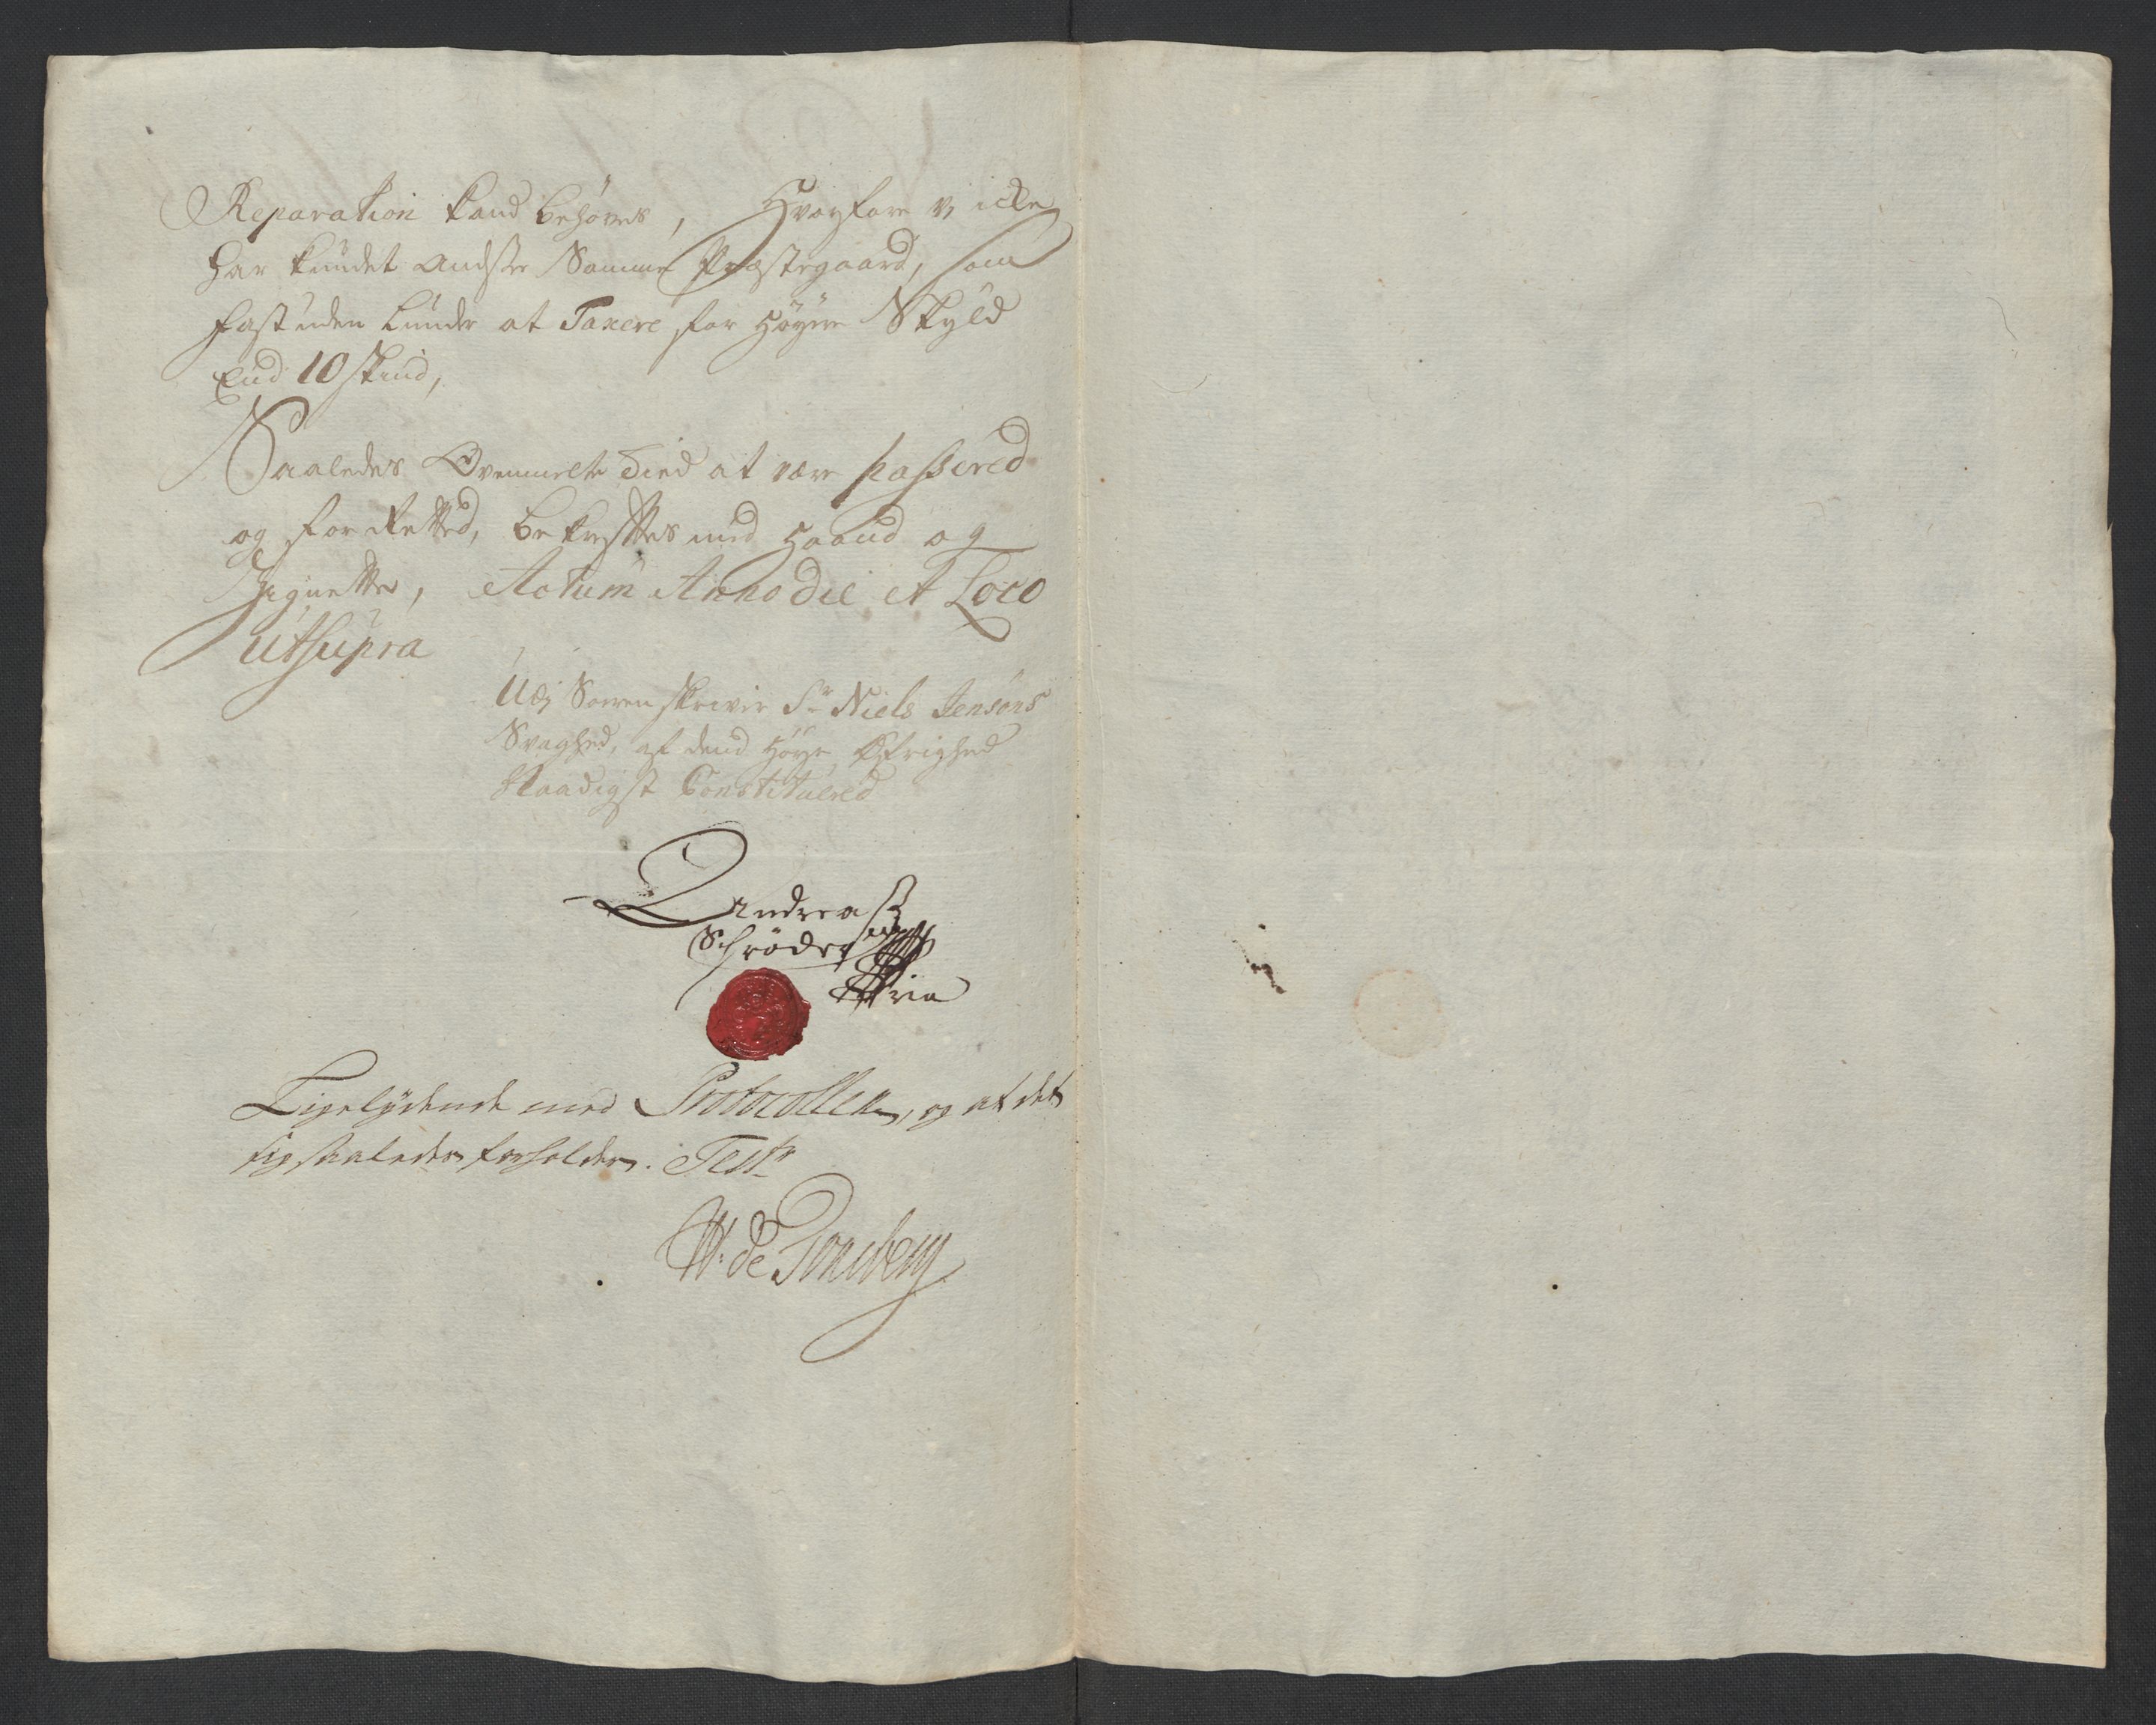 Reparation kand behøves, Hvorfore vi icke
har kundet andsee Samme Præstegaard, som
fast uden Lunde at Taxere for høyere Skyld
End 10 skind,
Saaledes Ovenmelte Tied at være passered
og forRetted, bekreftes med haand og
Zignetter, Actum Anno die et Loco
ut supra
Udj Sorenskriver Sr Niels Jensøns
Svaghed, af dend høye Øfrighed
Naadigst Constituered
Andreas
Schrøder
Ligelydende med Protocollen, og at det
sig saaledes forholder. Test
de Tonsberg